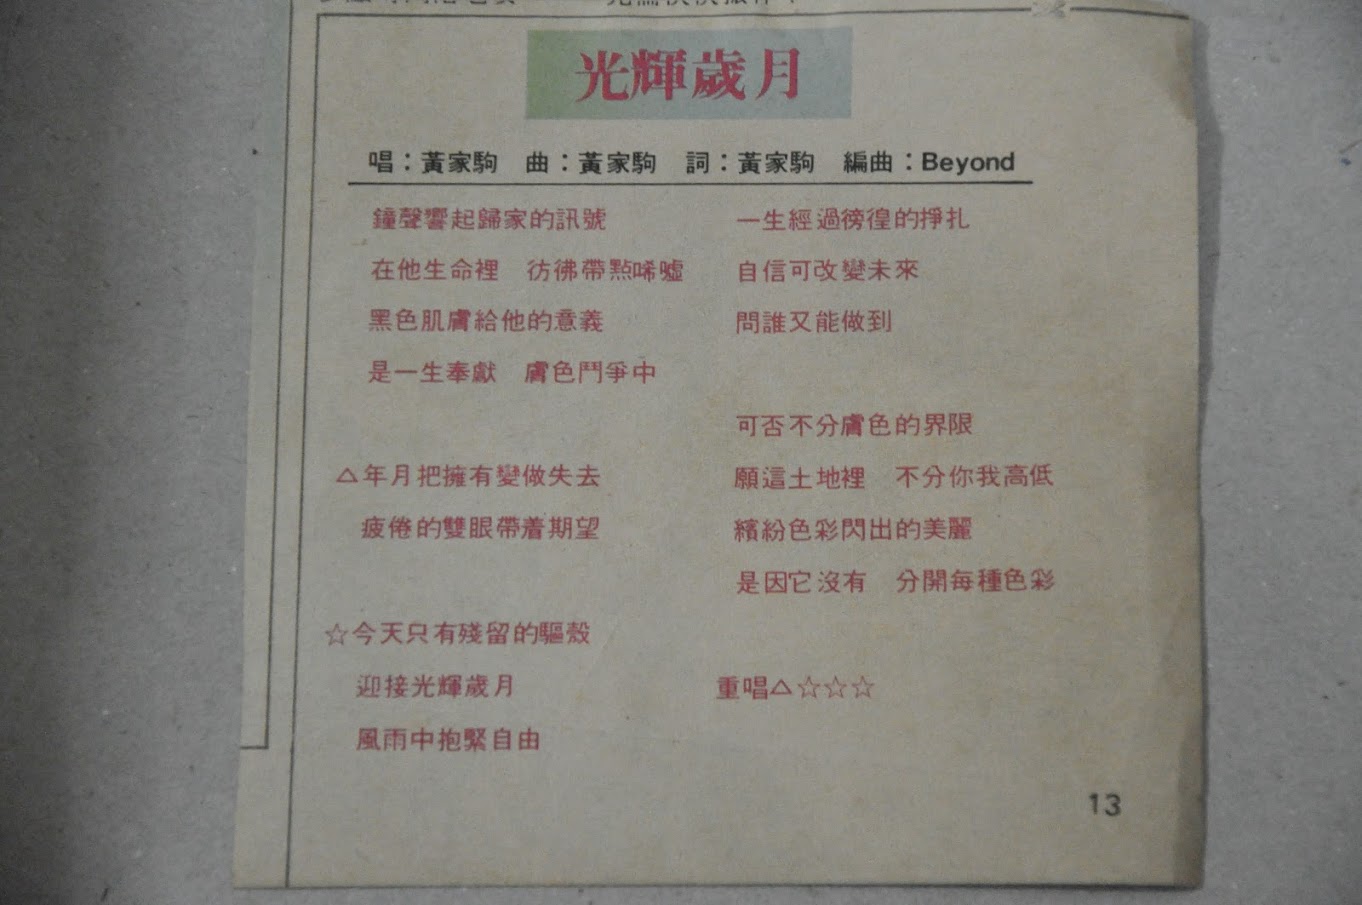 光輝歲月
唱：黃家駒　曲：黃家駒　詞：黃家駒　編曲：Beyond
鐘聲響起歸家的訊號
在他生命裡　彷彿帶點唏噓
黑色肌膚給他的意義
是一生奉獻　膚色鬥爭中
△年月把擁有變做失去
疲倦的雙眼帶着期望
☆今天只有殘留的軀殼
迎接光輝歲月
風雨中抱緊自由
一生經過徬徨的掙扎
自信可改變未來
問誰又能做到
可否不分膚色的界限
願這土地裡　不分你我高低
繽紛色彩閃出的美麗
是因它沒有　分開每種色彩
重唱△☆☆☆
13